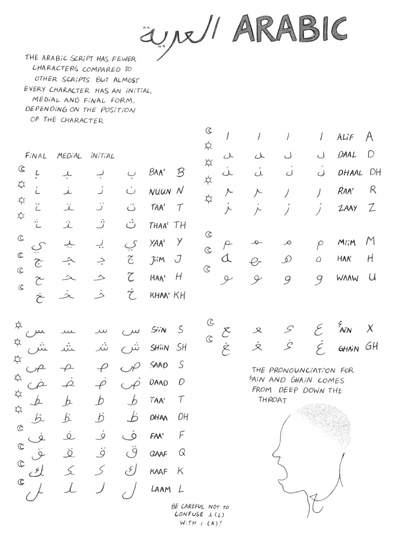 العربية ARABIC
THE ARABIC SCRIPT HAS FEWER
CHARACTERS COMPARED TO
OTHER SCRIPTS BUT ALMOST
EVERY CHARACTER HAS AN INITIAL,
MEDIAL AND FINAL FORM,
DEPENDING ON THE POSITION
OF THE CHARACTER
FINAL MEDIAL INITIAL
ـب ـبـ بـ ب BAA' B
ـن ـنـ نـ ن NUUN N
ـت ـتـ تـ ت TAA' T
ـث ـثـ ثـ ث THAA' TH
ـي ـيـ يـ ي YAA' Y
ـج ـجـ جـ ج JIIM J
ـح ـحـ حـ ح HAA' H
ـخ ـخـ خـ خ KHAA' KH
ـس ـسـ سـ س SIIN S
ـش ـشـ شـ ش SHIIN SH
ـص ـصـ صـ ص SAAD S
ـض ـضـ ضـ ض DAAD D
ـط ـطـ طـ ط TAA' T
ـظ ـظـ ظـ ظ DHAA DH
ـف ـفـ فـ ف FAA' F
ـق ـقـ قـ ق QAAF Q
ـك ـكـ كـ ك KAAF K
ـل ـلـ لـ ل LAAM L
BE CAREFUL NOT TO
CONFUSE لـ (L)
WITH ا (A)!
ـا ـا ا ا ALIF A
ـد ـد د د DAAL D
ـذ ـذ ذ ذ DHAAL DH
ـر ـر ر ر RAA' R
ـز ـز ز ز ZAAY Z
ـم ـمـ مـ م MIIM M
ـه ـهـ هـ ه H
ـو ـو و و WAAW U
ـع ـعـ عـ ع X
ـغ ـغـ غـ غ GHAIN GH
THE PRONOUNCIATION FOR
AIN AND GHAIN COMES
FROM DEEP DOWN THE
THROAT